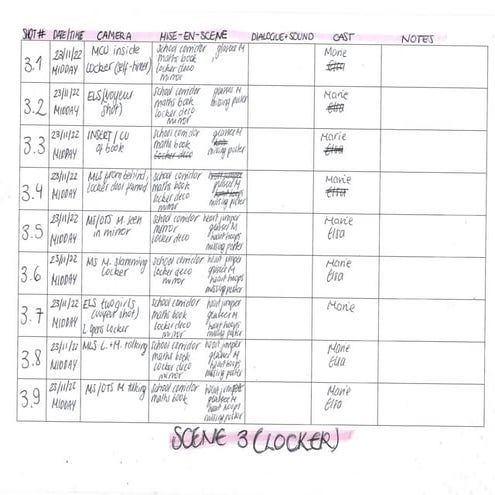 SHOT # DATE/TIME CAMERA MISE-EN-SCENE DIALOGUE + SOUND CAST NOTES
3.1 23/11/22 MIDDAY MCU inside locker (self-timer) school corridor maths book locker deco mirror glasses M Marie Elsa
3.2 23/11/22 MIDDAY ELS (voyeur shot) school corridor maths book locker deco mirror glasses M missing poster Marie Elsa
3.3 23/11/22 MIDDAY INSERT/CU of book school corridor maths book locker deco glasses M missing poster Marie Elsa
3.4 23/11/22 MIDDAY MLS from behind, locker door school corridor maths book locker deco mirror heart jumper glasses M heart hoops missing poster Marie Elsa
3.5 23/11/22 MIDDAY MS/OTS M. seen in mirror school corridor mirror locker deco heart jumper glasses M heart hoops missing poster Marie Elsa
3.6 23/11/22 MIDDAY MS M. slamming locker school corridor locker deco mirror heart jumper glasses M heart hoops missing poster Marie Elsa
3.7 23/11/22 MIDDAY ELS two girls (voyeur shot) L locker school corridor maths book locker deco mirror heart jumper glasses M heart hoops missing poster Marie
3.8 23/11/22 MIDDAY MLS L. + M. talking school corridor maths book locker deco mirror heart jumper glasses M heart hoops missing poster Marie Elsa
3.9 23/11/22 MIDDAY MS/OTS M talking school corridor maths book heart jumper glasses M heart hoops missing poster Marie Elsa
SCENE 3 (LOCKER)